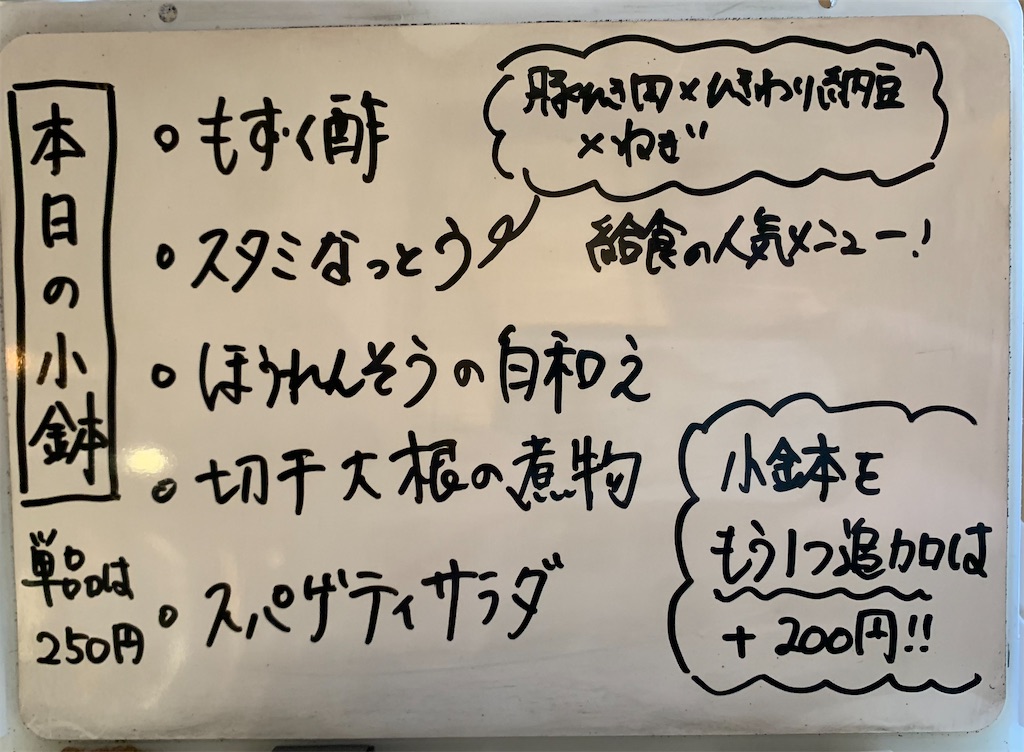 本日の小鉢
単品は
250円
もずく酢
スタミなっとう
豚ひき肉×ひきわり納豆
×ねぎ
給食の人気メニュー!
ほうれんそうの白和え
切干大根の煮物
スパゲティサラダ
小鉢を
もう1つ追加は
+200円!!